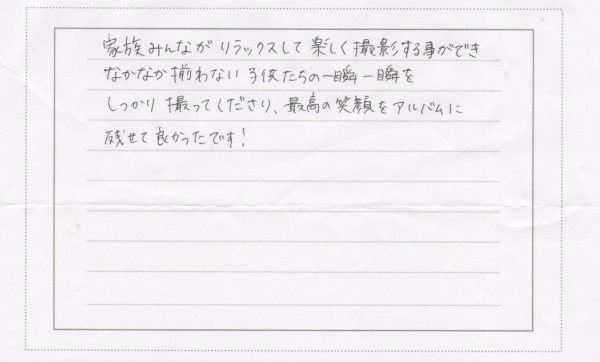 家族みんながリラックスして楽しく撮影する事ができ
なかなか揃わない子供たちの一瞬一瞬を
しっかり撮ってくださり、最高の笑顔をアルバムに
残せて良かったです!